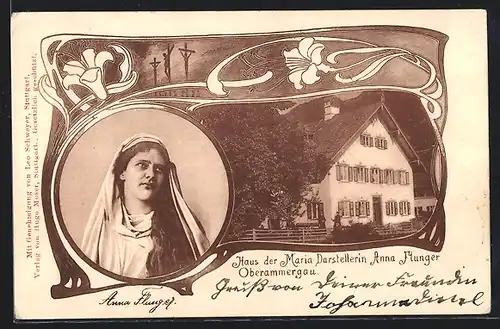 Mit Genehmigung von Leo Schweyer, Stuttgart.
Verlag von Hugo Moser, Stuttgart. Gesetzlich geschützt.
Haus der Maria Darstellerin Anna Flunger
Oberammergau.
Anna Flunger.
Gruß von Deiner Freundin
Johanna